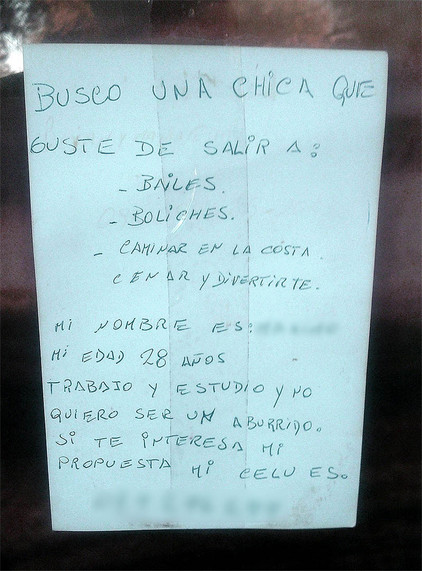 BUSCO UNA CHICA QUE
GUSTE DE SALIR A:
- BAILES.
- BOLICHES.
- CAMINAR EN LA COSTA.
CENAR Y DIVERTIRTE.
MI NOMBRE ES:
MI EDAD 28 AÑOS
TRABAJO Y ESTUDIO Y NO
QUIERO SER UN ABURRIDO.
SI TE INTERESA MI
PROPUESTA MI CELU ES.